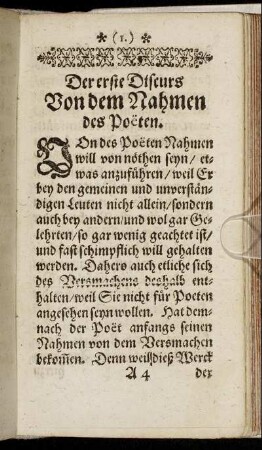 * (1.) *
Der erste Discurs
Von dem Nahmen
des Poëten.
VOn des Poëten Nahmen
will von nöthen seyn / et-
was anzuführen / weil Er
bey den gemeinen und unverstän-
digen Leuten nicht allein / sondern
auch bey andern / und wol gar Ge-
lehrten / so gar wenig geachtet ist /
und fast schimpflich will gehalten
werden. Dahero auch etliche sich
des Versmachens deshalb ent-
halten / weil Sie nicht für Poeten
angesehen seyn wollen. Hat dem-
nach der Poët anfangs seinen
Nahmen von dem Versmachen
bekom̃en. Denn weil dieß Werck
A 4 der